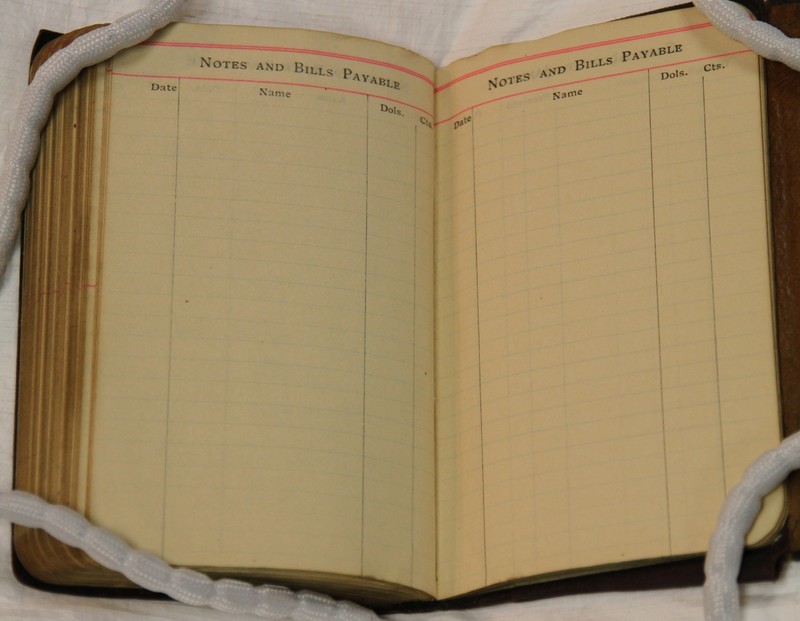 NOTES AND BILLS PAYABLE
Date Name Dols. Cts.
NOTES AND BILLS PAYABLE
Date Name Dols. Cts.